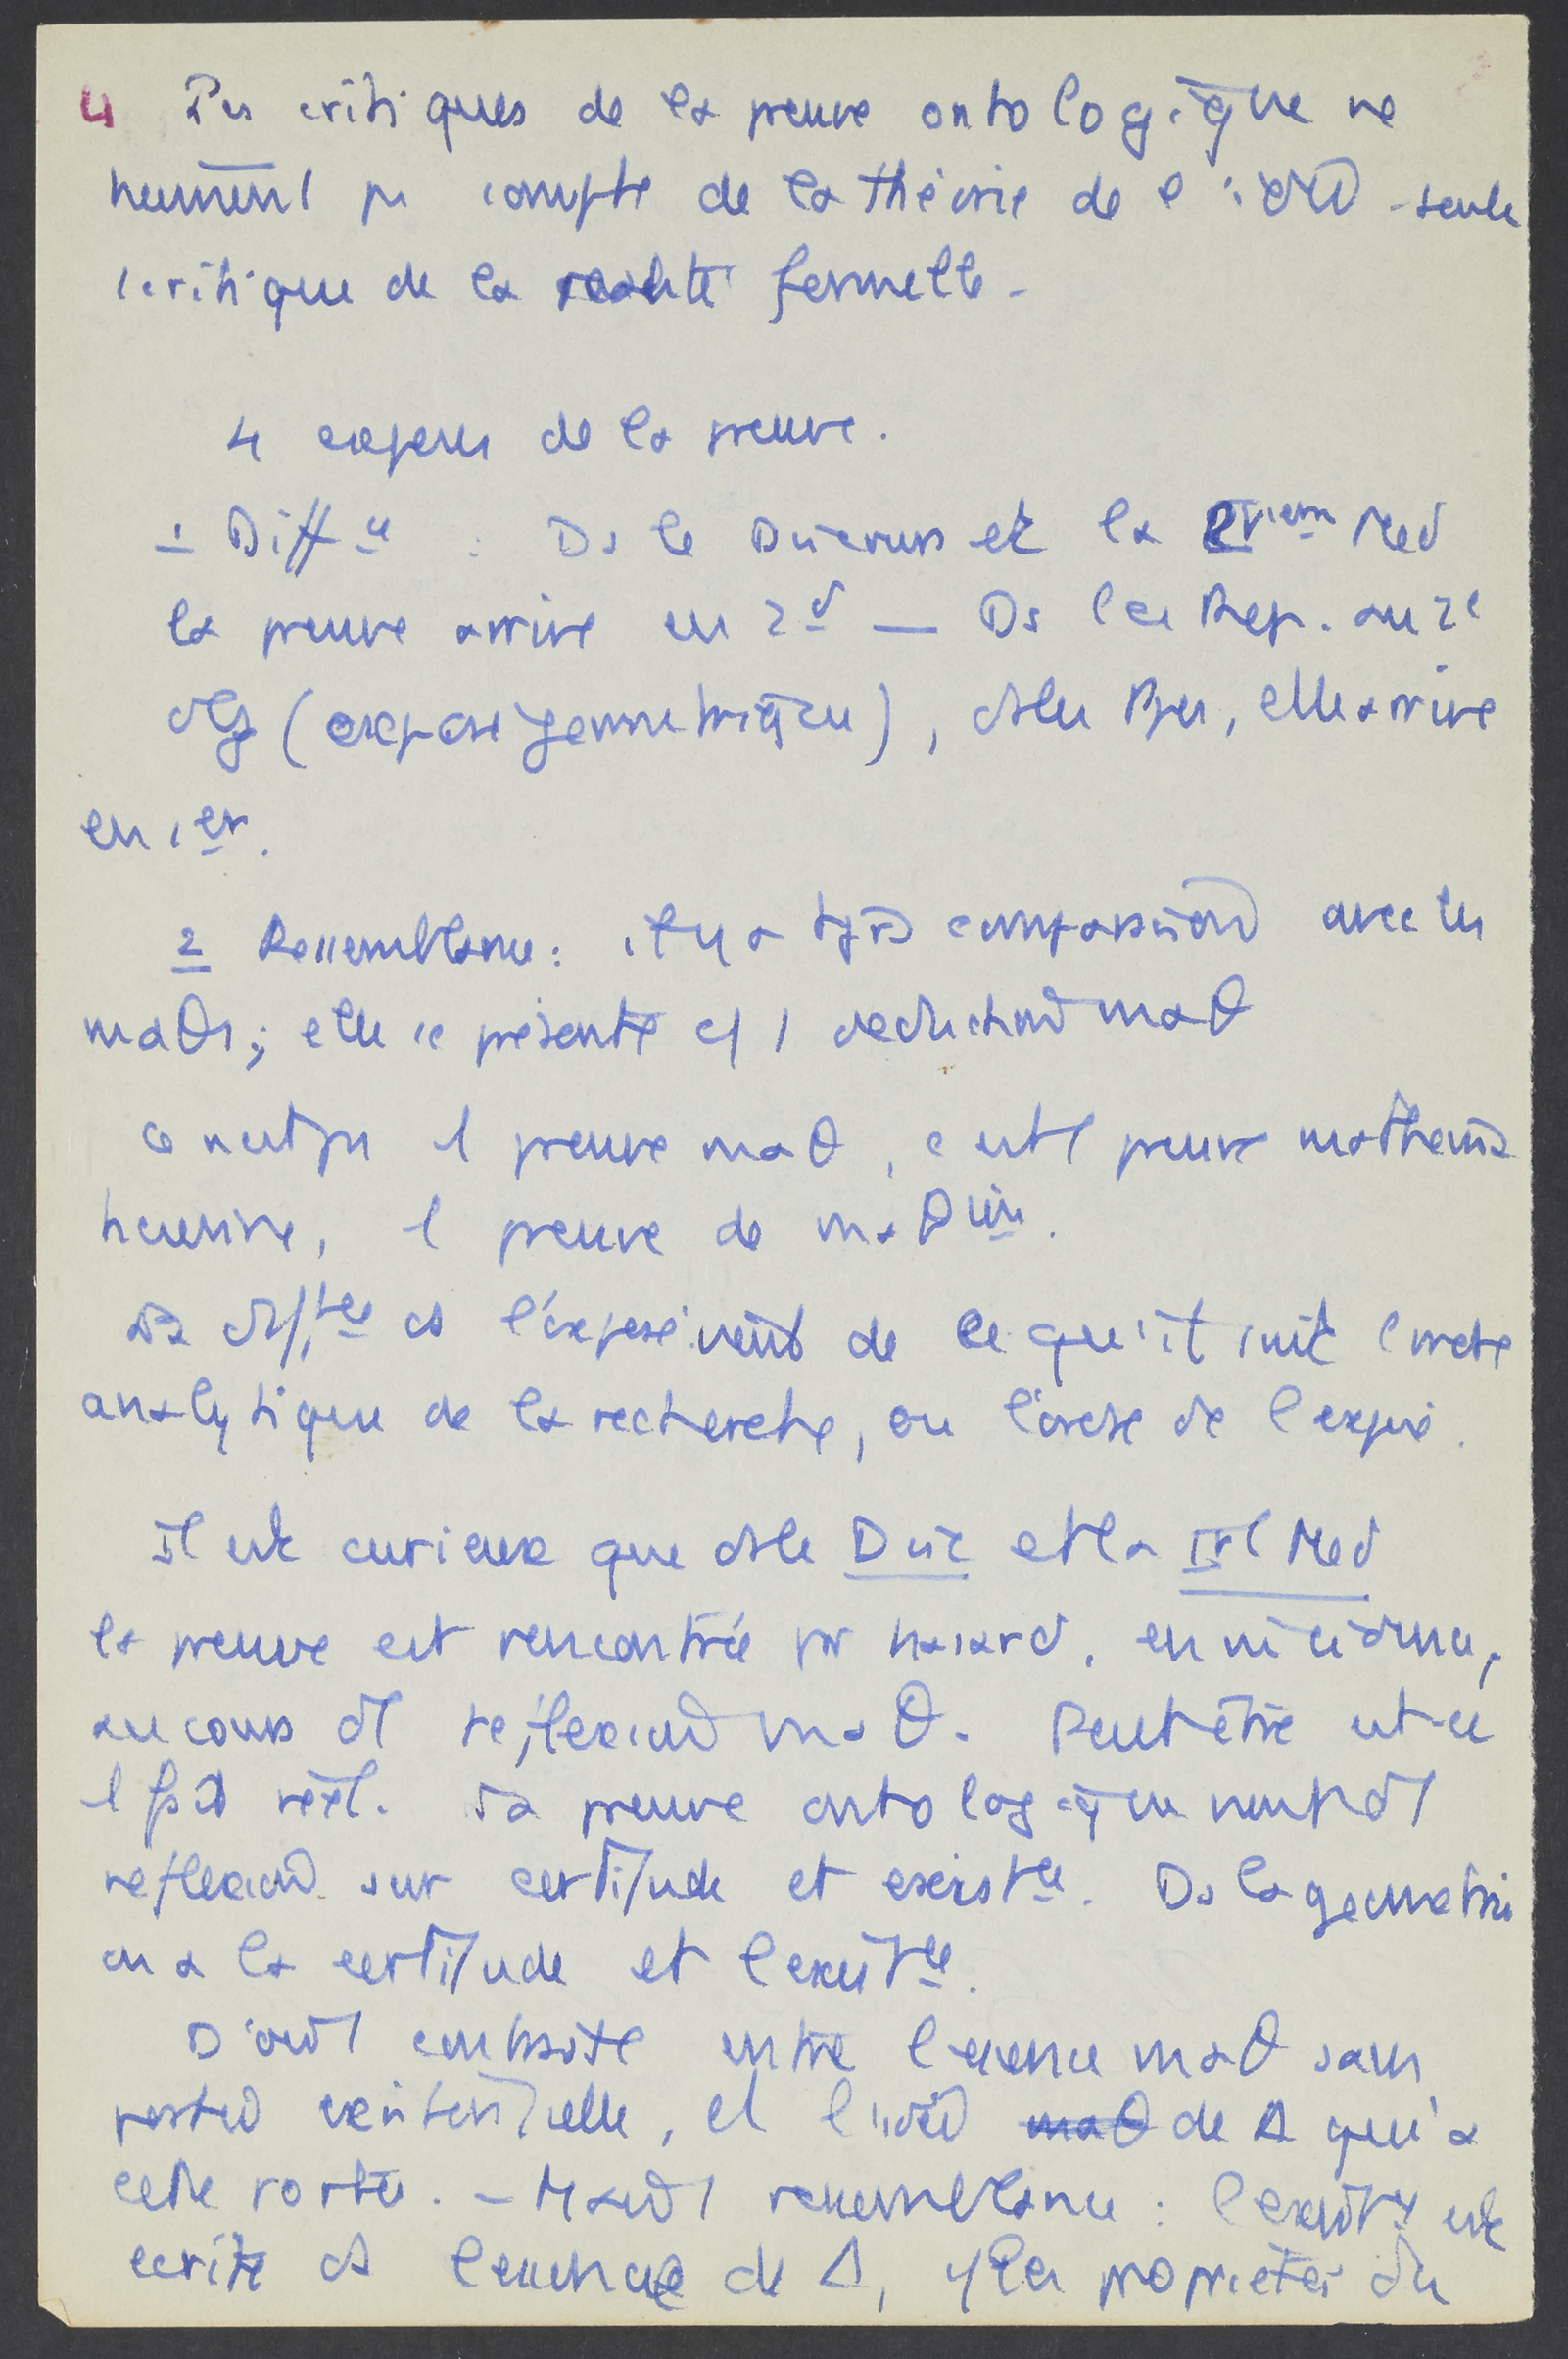 4 Les critiques de la preuve ontologique ne
tiennent pas compte de la théorie de l'idée - seule
critique de la réalité formelle -
4 exposés de la preuve.
1 Diffce : Ds le Discours et la Vième Med
la preuve arrive en 2d — Ds les Rep. aux 2e
obj (exposé geometrique), ds les Pes, elle arrive
en 1er.
2 Ressemblance : il y a tjrs comparaison avec les
maθs ; elle se présente c/ 1 deduction maθ
ce n'est pas 1 preuve maθ, c'est 1 preuve mathema
, 1 preuve de maθien.
La diffce ds l'exposé vient de ce qu'il suit l'ordre
analytique de la recherche, ou l'ordre de l'exposé.
Il est curieux que ds le Disc et la Ve Med
la preuve est rencontrée par hasard,
au cours d'1 reflexion maθ. Peut être est-ce
1 fait réel. La preuve ontologique vient d'1
reflexion sur certitude et existce. Ds la geometrie
on a la certitude et l'existce.
D'où 1 contraste entre l'essence maθ sans
portée existentielle, et l'idée maθ de Δ qui a
cette portée. - Mais 1 ressemblance : l'existce est
écrite ds l'essence de Δ, c/ les propriétés du